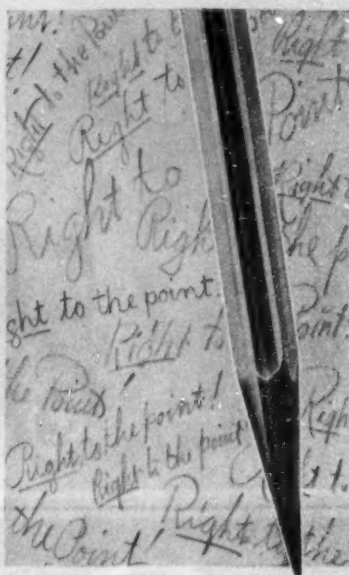 nt!
Right to the Point
Right to t
Right
t!
Right to
Point
Right to
Right
Right the p
ght to the point.
Right to Point.
the Point!
Right to the point!
Righ
Right to the point
t t
the Point!
Right to the